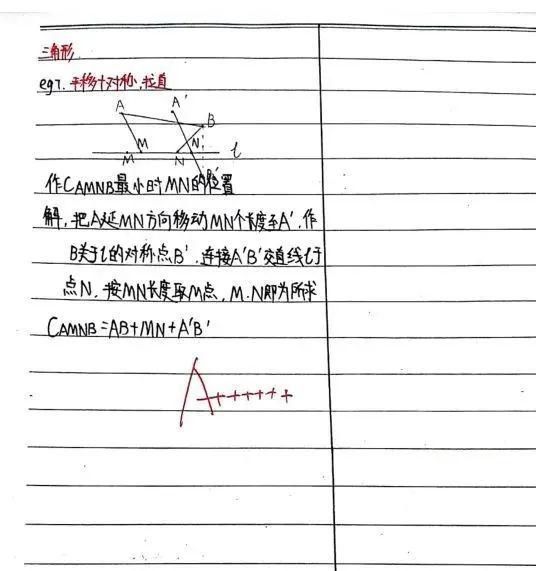 三角形
eg7. 平移+对称,拉直
A A'
B
M N' l
M N B'
作CAMNB最小时MN的位置
解,把A延MN方向移动MN个长度至A'.作
B关于l的对称点B'.连接A'B'交直线l于
点N.按MN长度取M点,M.N即为所求
CAMNB=AB+MN+A'B'
A++++++